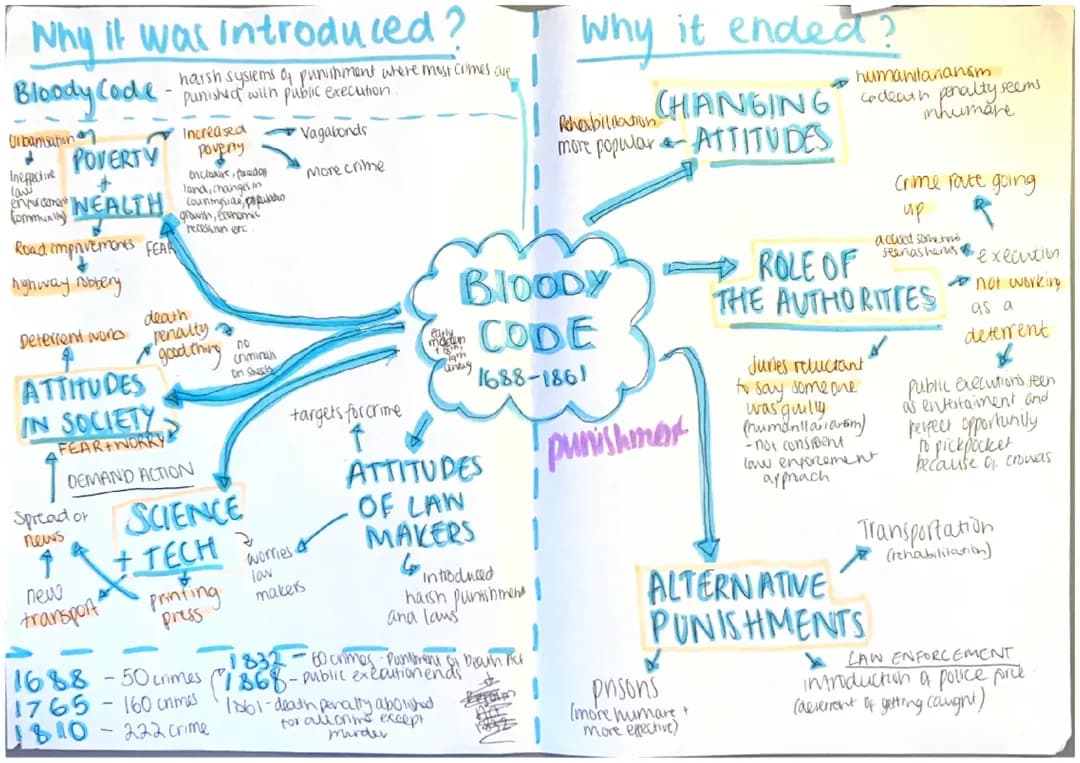 Why it was introduced?
Bloody Code - harsh systems of punishment where most crimes are
punished with public execution.
Urbanisation
Ineffective
law
enforcement
(community)
POVERTY
+
WEALTH
Increased
poverty
Vagabonds
more crime
enclosure,
land, changes in
countryside, population
growth, economic
recession etc.
Road improvements
highway robbery
FEAR
Deterrent works
death
penalty
good thing
no
criminals
on streets
ATTITUDES
IN SOCIETY
FEAR + WORRY
DEMAND ACTION
Spread of
news
new
transport
SCIENCE
+ TECH
printing
press
worries
law
makers
targets for crime
ATTITUDES
OF LAW
MAKERS
introduced
harsh punishment
and laws
1688 - 50 crimes
1765 - 160 crimes
1810 - 222 crime
1832 - 60 crimes - Punishment of Death Act
1868 - public execution ends
1861 - death penalty abolished
for all crime except
murder
BLOODY
CODE
early
modern
1688-1861
punishment
Why it ended?
CHANGING
ATTITUDES
humanitarianism
death penalty seems
inhumane
Rehabilitation
more popular
ROLE OF
THE AUTHORITIES
crime rate going
up
execution
not working
as a
deterrent
public executions seen
as entertaiment and
perfect opportunity
to pickpocket
because of crowds
Juries reluctant
to say someone
was guilty
(humanitarianism)
- not consistent
law enforcement
approach
ALTERNATIVE
PUNISHMENTS
Transportation
(rehabilitation)
prisons
(more humane +
more effective)
LAW ENFORCEMENT
introduction of police force
(deterrent of getting caught)